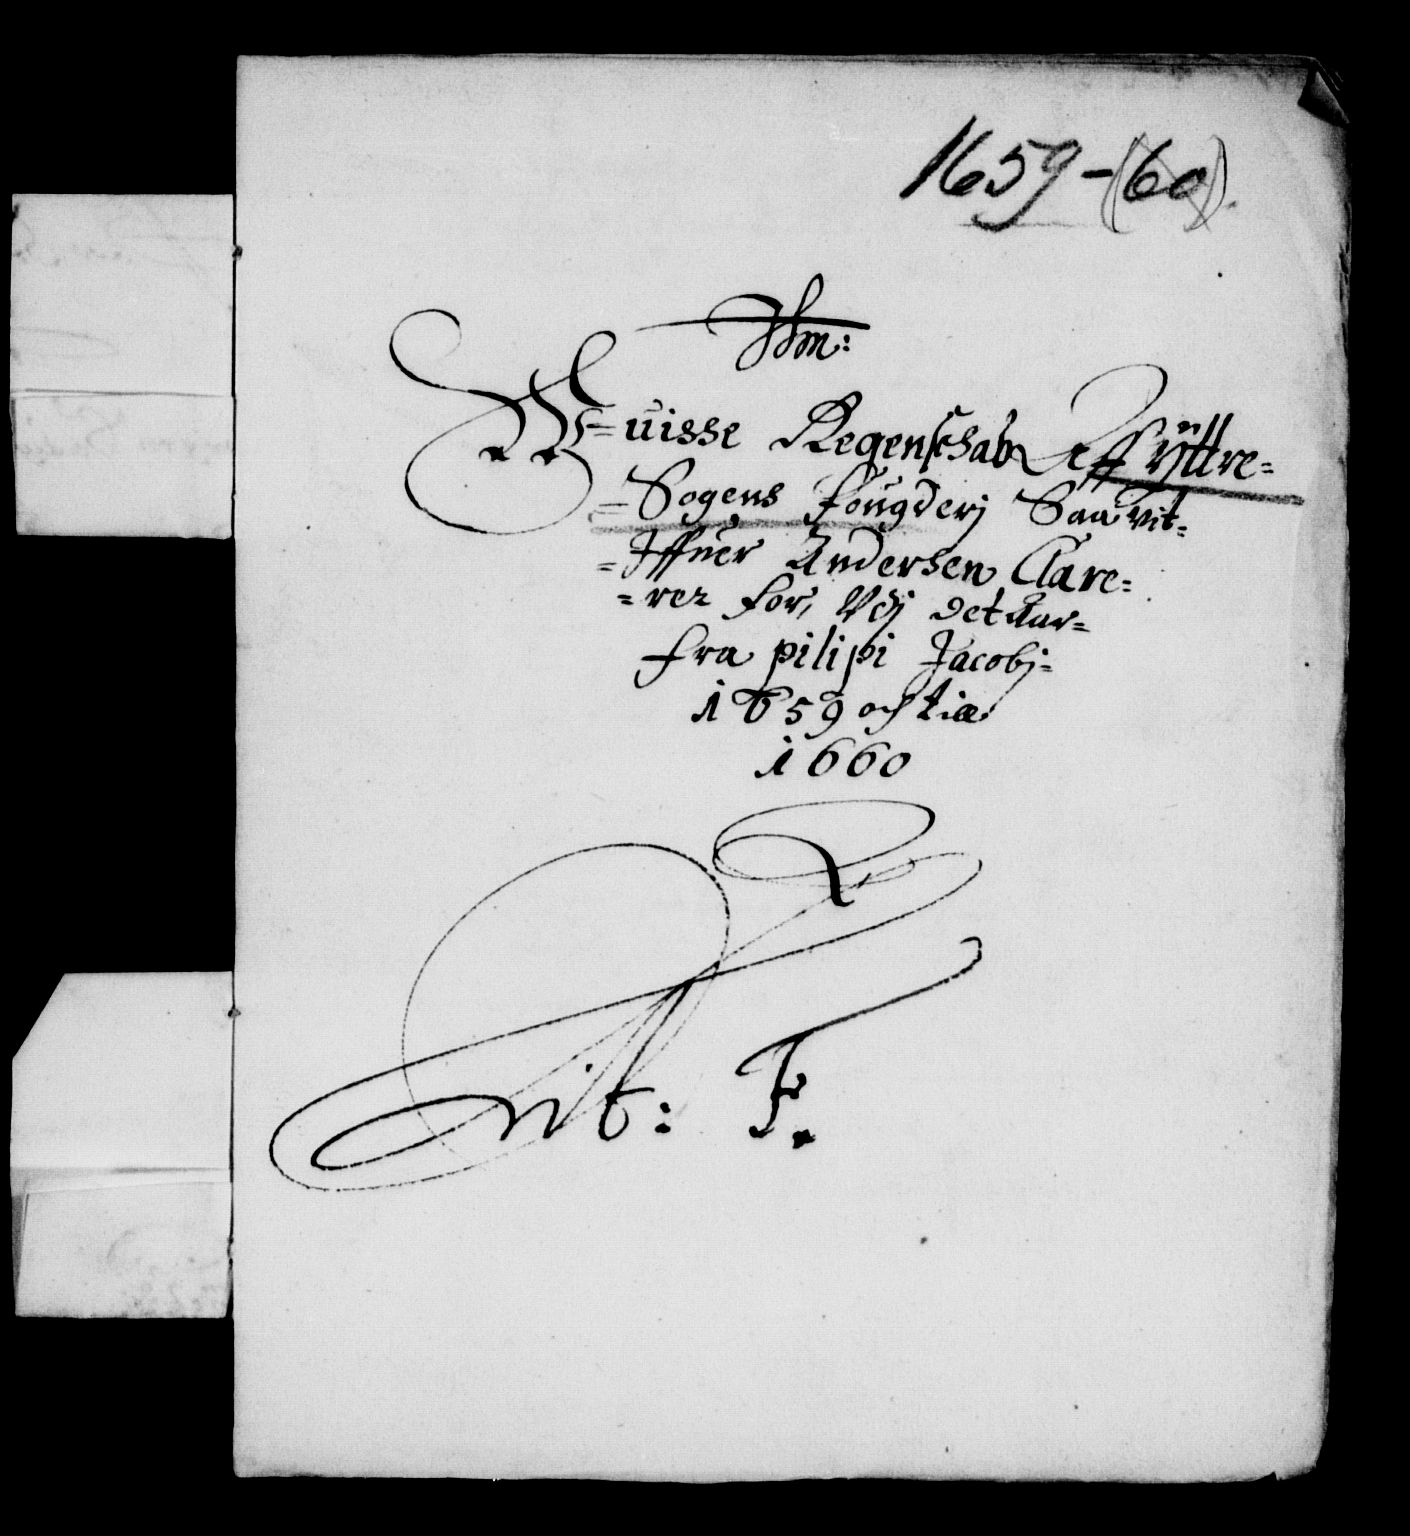 1659-(60).
Uuisse Regenschab Aff Ÿttre=
=Sogens Fougderj Saa vit=
=Iffuer Andersen Clare=
=rer for, Vdj det Aar=
fra pilipi Jacobj=
1659 och till
1660
Lit: F.